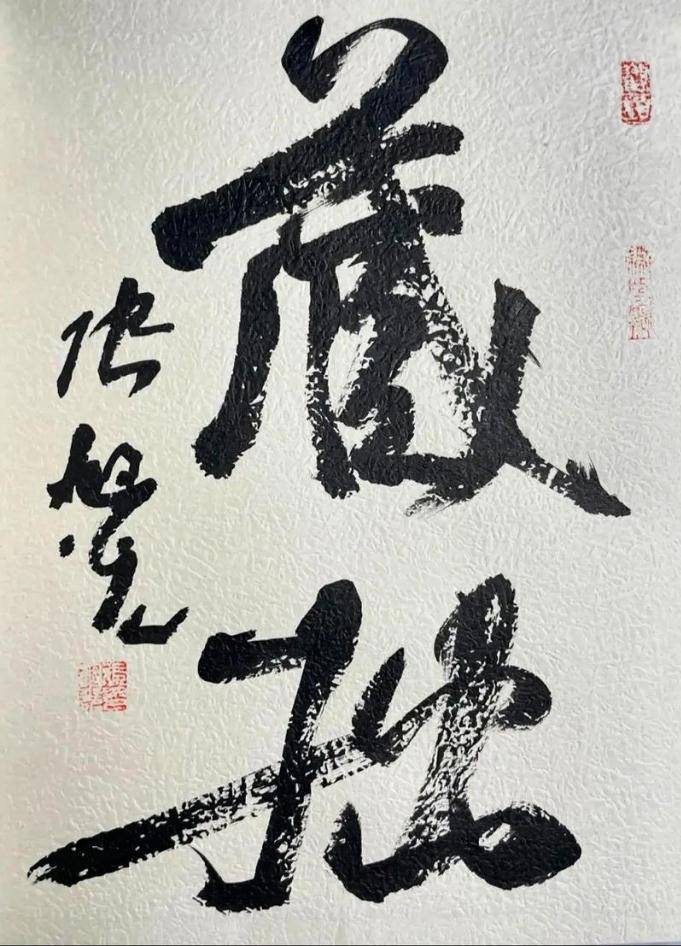 藏拙
张旭光